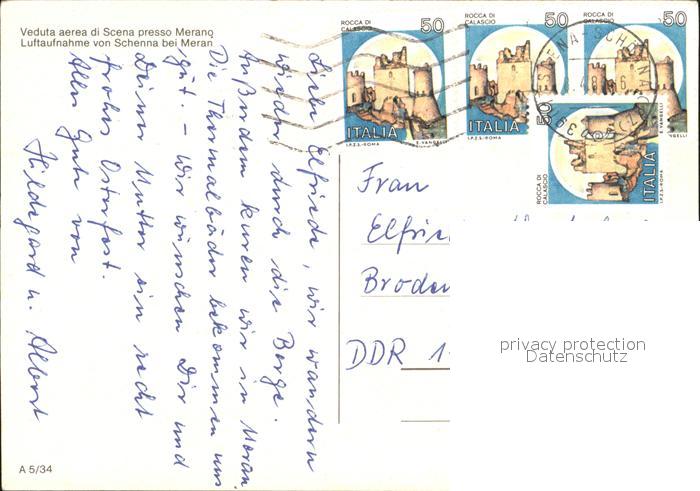 Veduta aerea di Scena presso Merano
Luftaufnahme von Schenna bei Meran
Liebe Elfriede, wir wandern
wieder durch die Berge.
Außerdem kuren wir in Meran.
Die Thermalbäder bekommen uns
gut. – Wir wünschen Dir und
Deiner Mutter ein recht
frohes Osterfest.
Alles Gute von
Hildegard u. Albert
A 5/34
ROCCA DI
CALASCIO
50
ITALIA
I.P.Z.S.-ROMA
E. VANGELLI
ROCCA DI
CALASCIO
50
ITALIA
I.P.Z.S.-ROMA
ROCCA DI
CALASCIO
50
E. VANGELLI
ROCCA DI
CALASCIO
50
ITALIA
I.P.Z.S.-ROMA
E. VANGELLI
Frau
DDR
privacy protection
Datenschutz